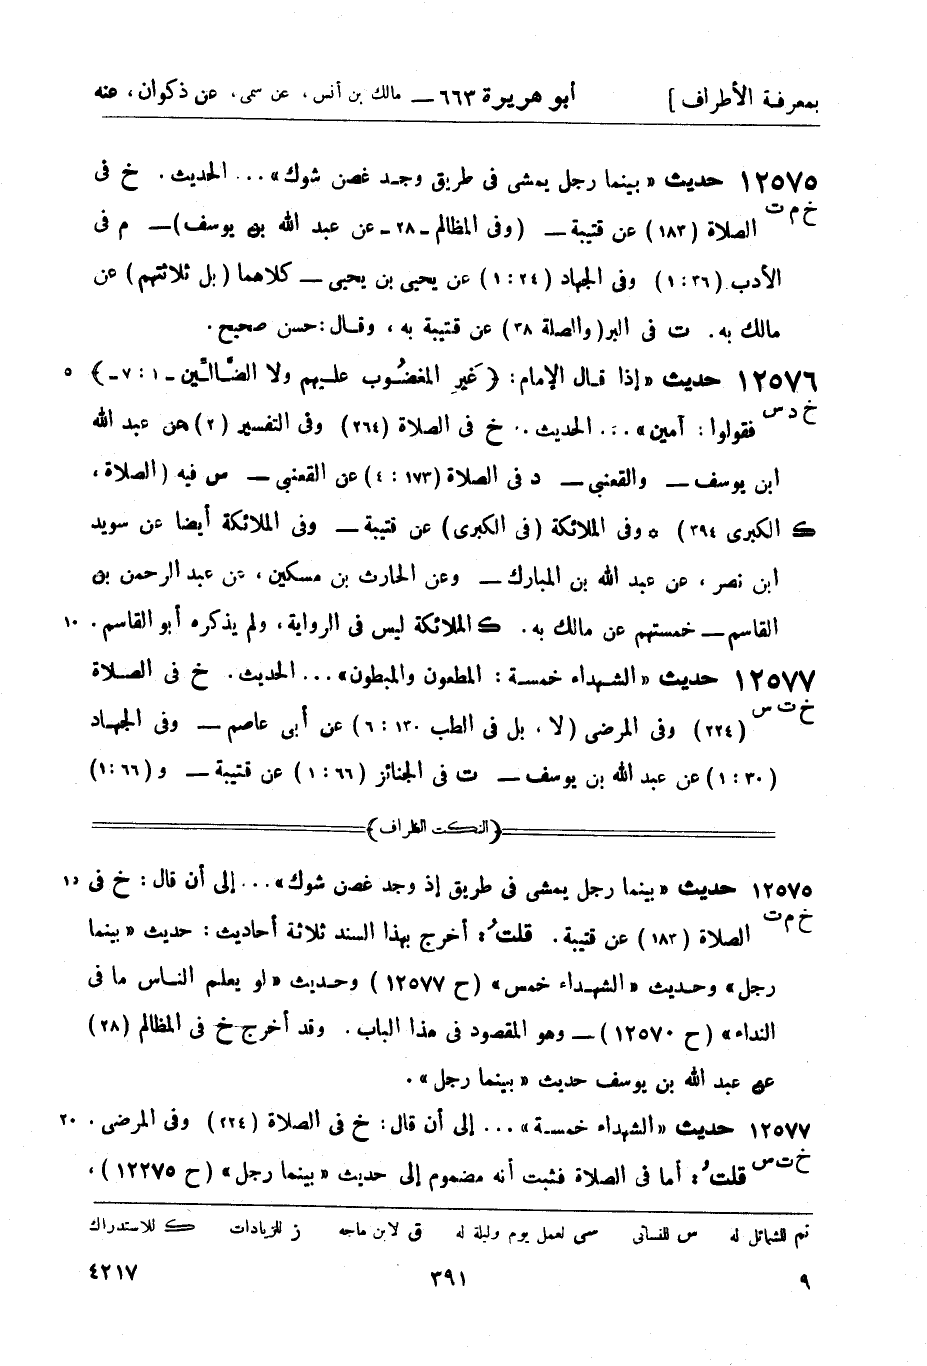 بمعرفة الأطراف ] أبو هريرة ٦٦٣ — مالك بن أنس ، عن سمى ، عن ذكوان ، عنه
١٢٥٧٥ حديث « بينما رجل يمشى فى طريق وجد غصن شوك » ... الحديث . خ فى
خ م ت الصلاة ( ١٨٣ ) عن قتيبة — ( وفى المظالم - ٢٨ - عن عبد الله بن يوسف ) — م فى
الأدب ( ٣٦ : ١ ) وفى الجهاد ( ٢٤ : ١ ) عن يحيى بن يحيى — كلاهما ( بل ثلاثتهم ) عن
مالك به . ت فى البر ( والصلة ٣٨ ) عن قتيبة به ، وقال : حسن صحيح .
١٢٥٧٦ حديث « إذا قال الإمام : ﴿ غيرِ المغضُوب عليهم ولا الضَّالِّين - ١ : ٧ - ﴾ ٥
خ د س فقولوا : آمين » ... الحديث . خ فى الصلاة ( ٢٦٤ ) وفى التفسير ( ٢ ) عن عبد الله
ابن يوسف — والقعنبي — د فى الصلاة ( ١٧٣ : ٤ ) عن القعنبي — س فيه ( الصلاة ،
ك الكبرى ٣٩٤ ) * وفى الملائكة ( فى الكبرى ) عن قتيبة — وفى الملائكة أيضا عن سويد
ابن نصر ، عن عبد الله بن المبارك — وعن الحارث بن مسكين ، عن عبد الرحمن بن
القاسم — خمستهم عن مالك به . ك الملائكة ليس فى الرواية ، ولم يذكره أبو القاسم . ١٠
١٢٥٧٧ حديث « الشهداء خمسة : المطعون والمبطون » ... الحديث . خ فى الصلاة
خ ت س ( ٢٢٤ ) وفى المرضى ( لا ، بل فى الطب ١٣٠ : ٦ ) عن أبى عاصم — وفى الجهاد
( ٣٠ : ١ ) عن عبد الله بن يوسف — ت فى الجنائز ( ٦٦ : ١ ) عن قتيبة — و ( ٦٦ : ١ )
﴿ النكت الظراف ﴾
١٢٥٧٥ حديث « بينما رجل يمشى فى طريق إذ وجد غصن شوك » ... إلى أن قال : خ فى ١٥
خ م ت الصلاة ( ١٨٣ ) عن قتيبة . قلتُ : أخرج بهذا السند ثلاثة أحاديث : حديث « بينما
رجل » وحديث « الشهداء خمس » ( ح ١٢٥٧٧ ) وحديث « لو يعلم الناس ما فى
النداء » ( ح ١٢٥٧٠ ) — وهو المقصود فى هذا الباب . وقد أخرج خ فى المظالم ( ٢٨ )
عن عبد الله بن يوسف حديث « بينما رجل » .
١٢٥٧٧ حديث « الشهداء خمسة » ... إلى أن قال : خ فى الصلاة ( ٢٢٤ ) وفى المرضى . ٢٠
خ ت س قلتُ : أما فى الصلاة فثبت أنه مضموم إلى حديث « بينما رجل » ( ح ١٢٢٧٥ ) ،
تم للشمائل له س للنسائى سى لعمل يوم وليلة له ق لابن ماجه ز للزيادات ك للاستدراك
٩ ٣٩١ ٤٢١٧